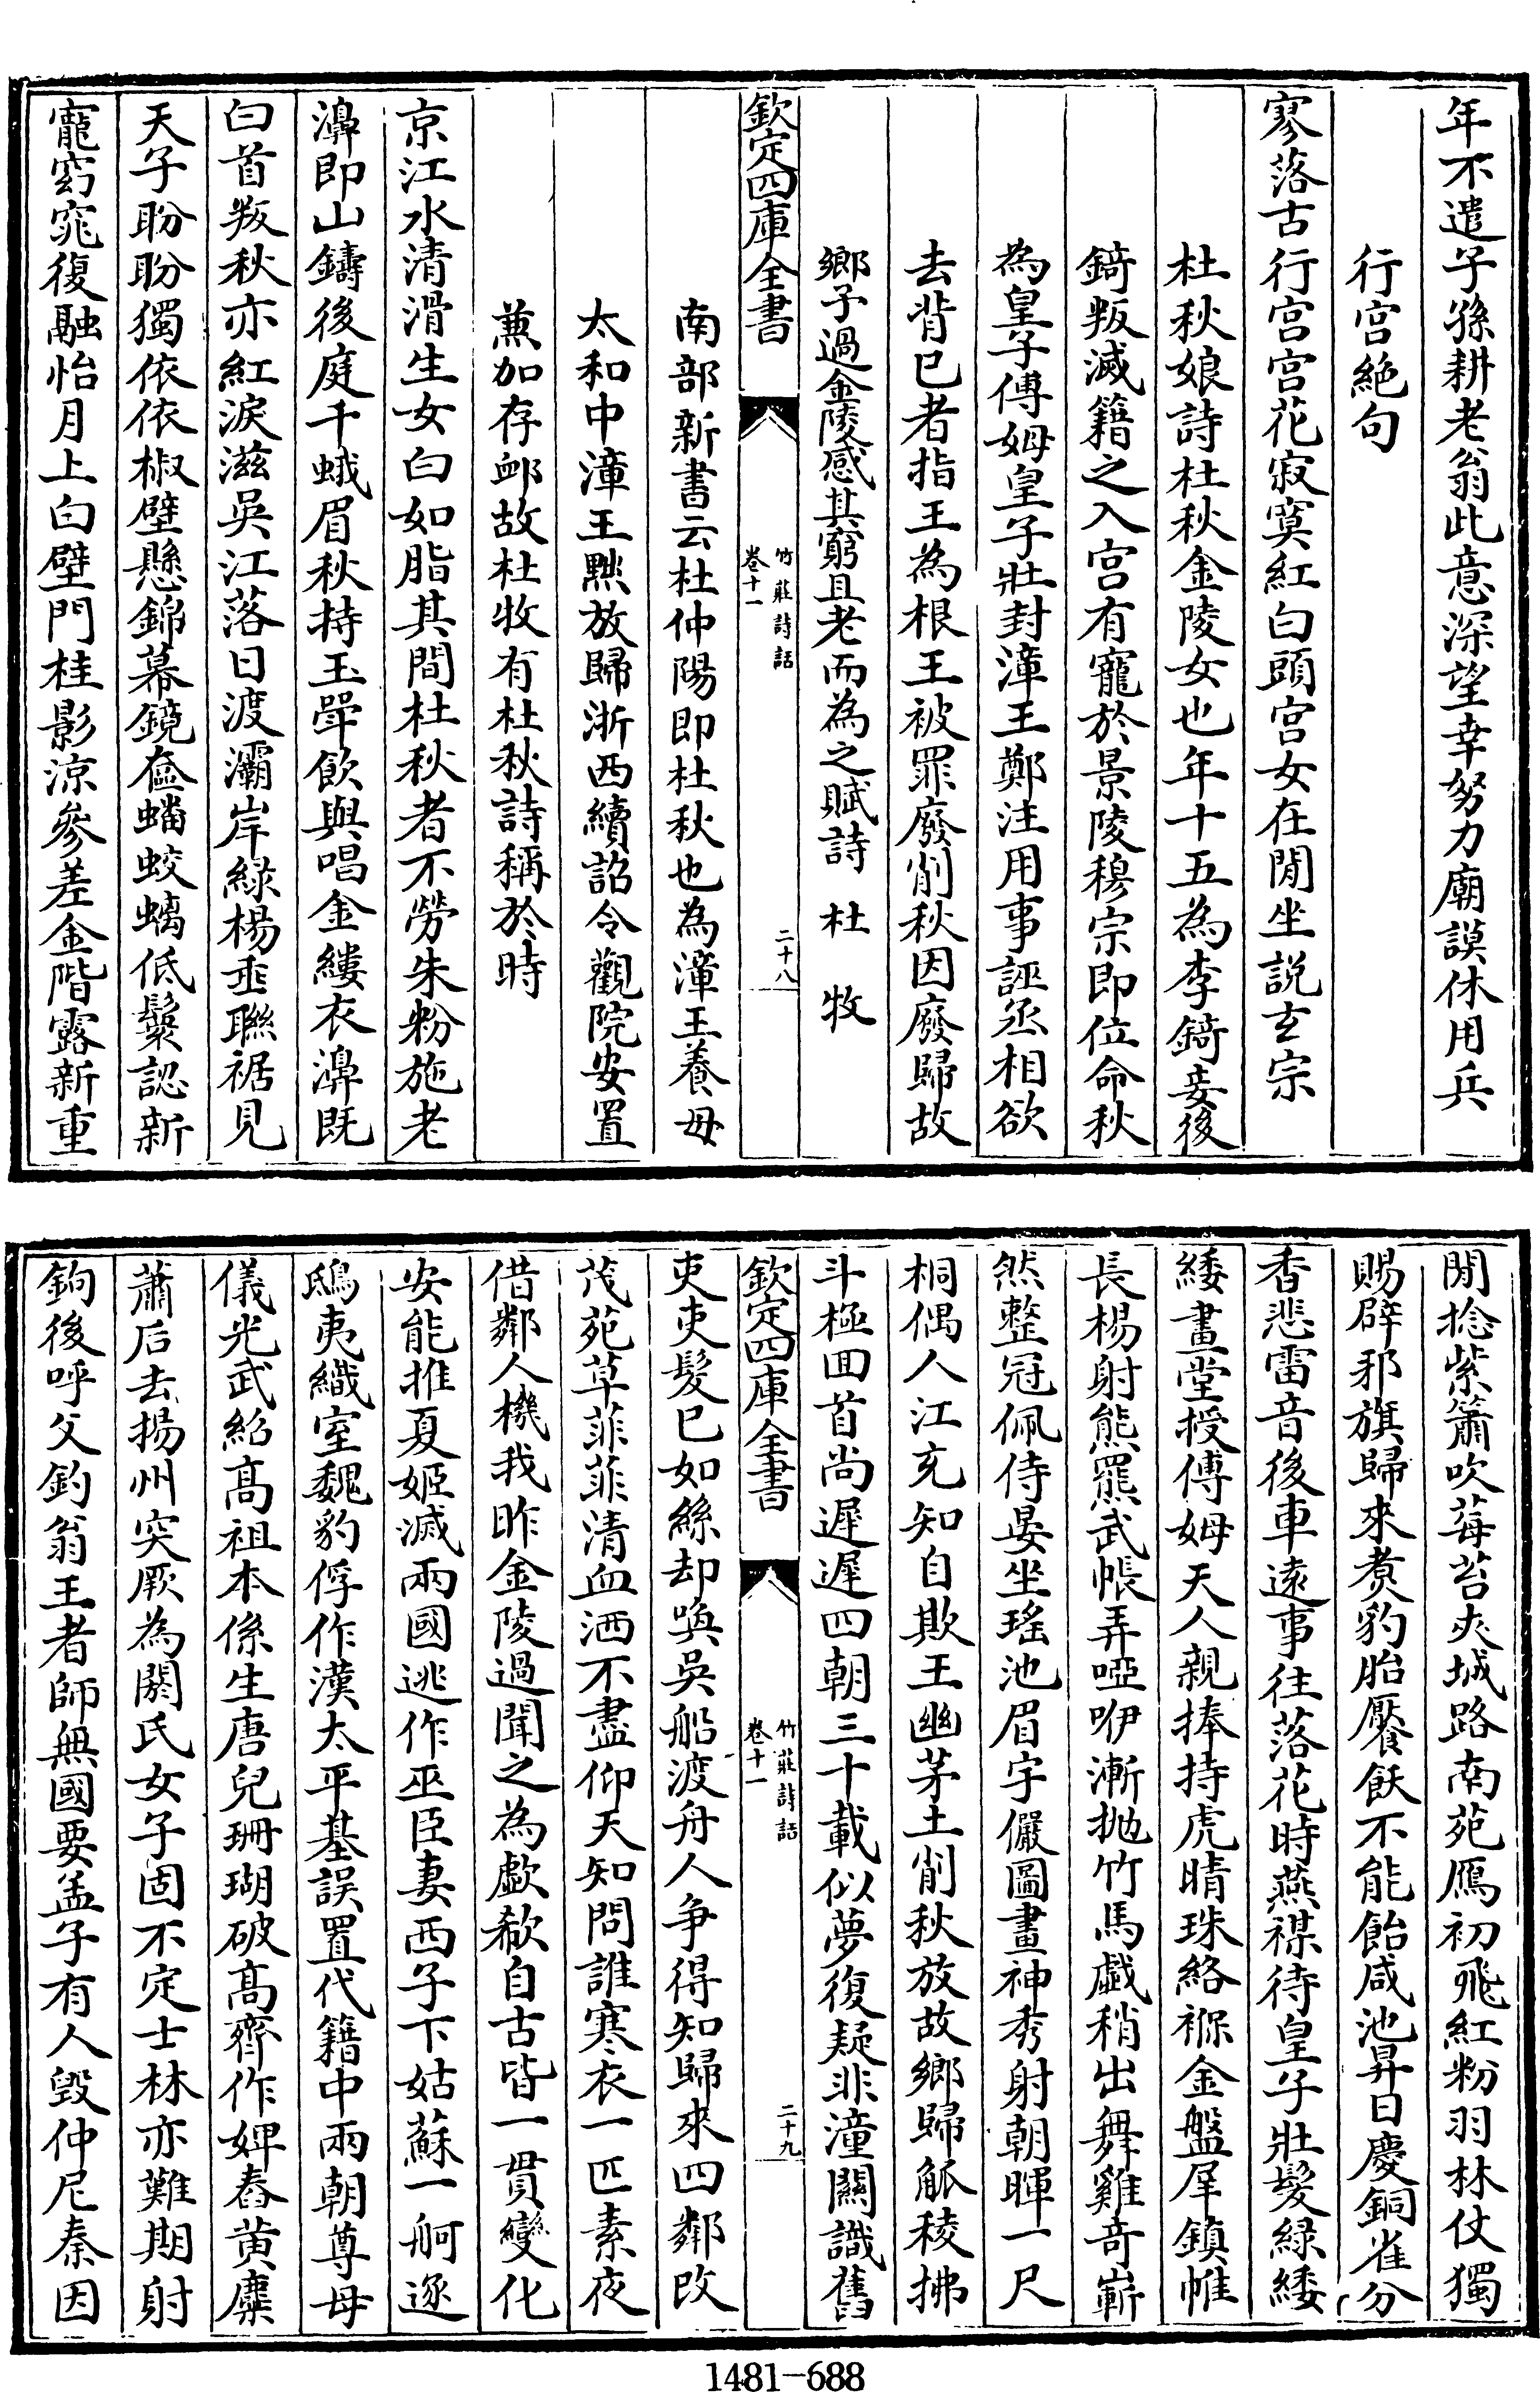 年不遣子孫耕老翁此意深望幸努力廟謨休用兵
行宫絶句
寥落古行宫宫花寂寞紅白頭宫女在閒坐説𤣥宗
杜秋娘詩杜秋金陵女也年十五為李錡妾後
錡叛滅籍之入宫有寵於景陵穆宗即位命秋
為皇子傅姆皇子壯封漳王鄭注用事誣丞相欲
去背已者指王為根王被罪廢削秋因廢歸故
鄉予過金陵感其窮且老而為之賦詩 杜 牧
欽定四庫全書 竹莊詩話 卷十一 二十八
南部新書云杜仲陽即杜秋也為漳王養母
太和中漳王黜放歸浙西續詔令觀院安置
兼加存䘏故杜牧有杜秋詩稱於時
京江水清滑生女白如脂其間杜秋者不勞朱粉施老
濞即山鑄後庭千蛾眉秋持玉斝飲與唱金縷衣濞既
白首叛秋亦紅淚滋吳江落日渡灞岸緑楊垂聯裾見
天子盼盼獨依依椒壁懸錦幕鏡奩蟠蛟螭低鬟認新
寵窈窕復融怡月上白璧門桂影涼參差金階露新重
閒捻紫簫吹莓苔夾城路南苑鴈初飛紅粉羽林仗獨
賜辟邪旗歸來煑豹胎饜飫不能飴咸池昇日慶銅雀分
香悲雷音後車逺事往落花時燕禖待皇子壯髮緑緌
緌畫堂授傅姆天人親捧持虎睛珠絡褓金盤犀鎮帷
長楊射熊羆武帳弄啞咿漸抛竹馬戲稍出舞雞竒嶄
然整冠佩侍晏坐瑤池眉宇儼圖畫神秀射朝暉一尺
桐偶人江充知自欺王幽茅土削秋放故鄉歸觚稜拂
斗極回首尚遲遲四朝三十載似夢復疑非潼關識舊
欽定四庫全書 竹莊詩話 卷十一 二十九
吏吏髮已如絲却喚吳船渡舟人争得知歸來四鄰改
茂苑草菲菲清血洒不盡仰天知問誰寒衣一匹素夜
借鄰人機我昨金陵過聞之為歔欷自古皆一貫變化
安能推夏姬滅兩國逃作巫臣妻西子下姑蘇一舸逐
鴟夷織室魏豹俘作漢太平基誤置代籍中兩朝尊母
儀光武紹髙祖本係生唐兒珊瑚破髙齊作婢舂黄糜
蕭后去揚州突厥為閼氏女子固不定士林亦難期射
鉤後呼父釣翁王者師無國要孟子有人毁仲尼秦因
1481-688